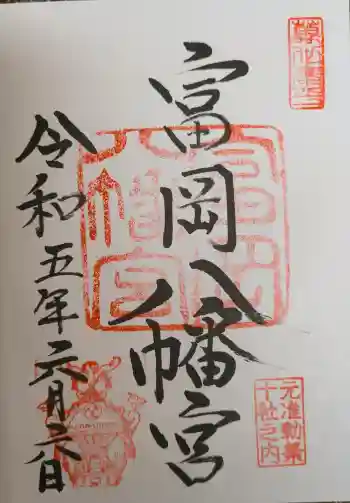 富岡八幡宮
令和五年六月六日
元准勅祭
十社之内